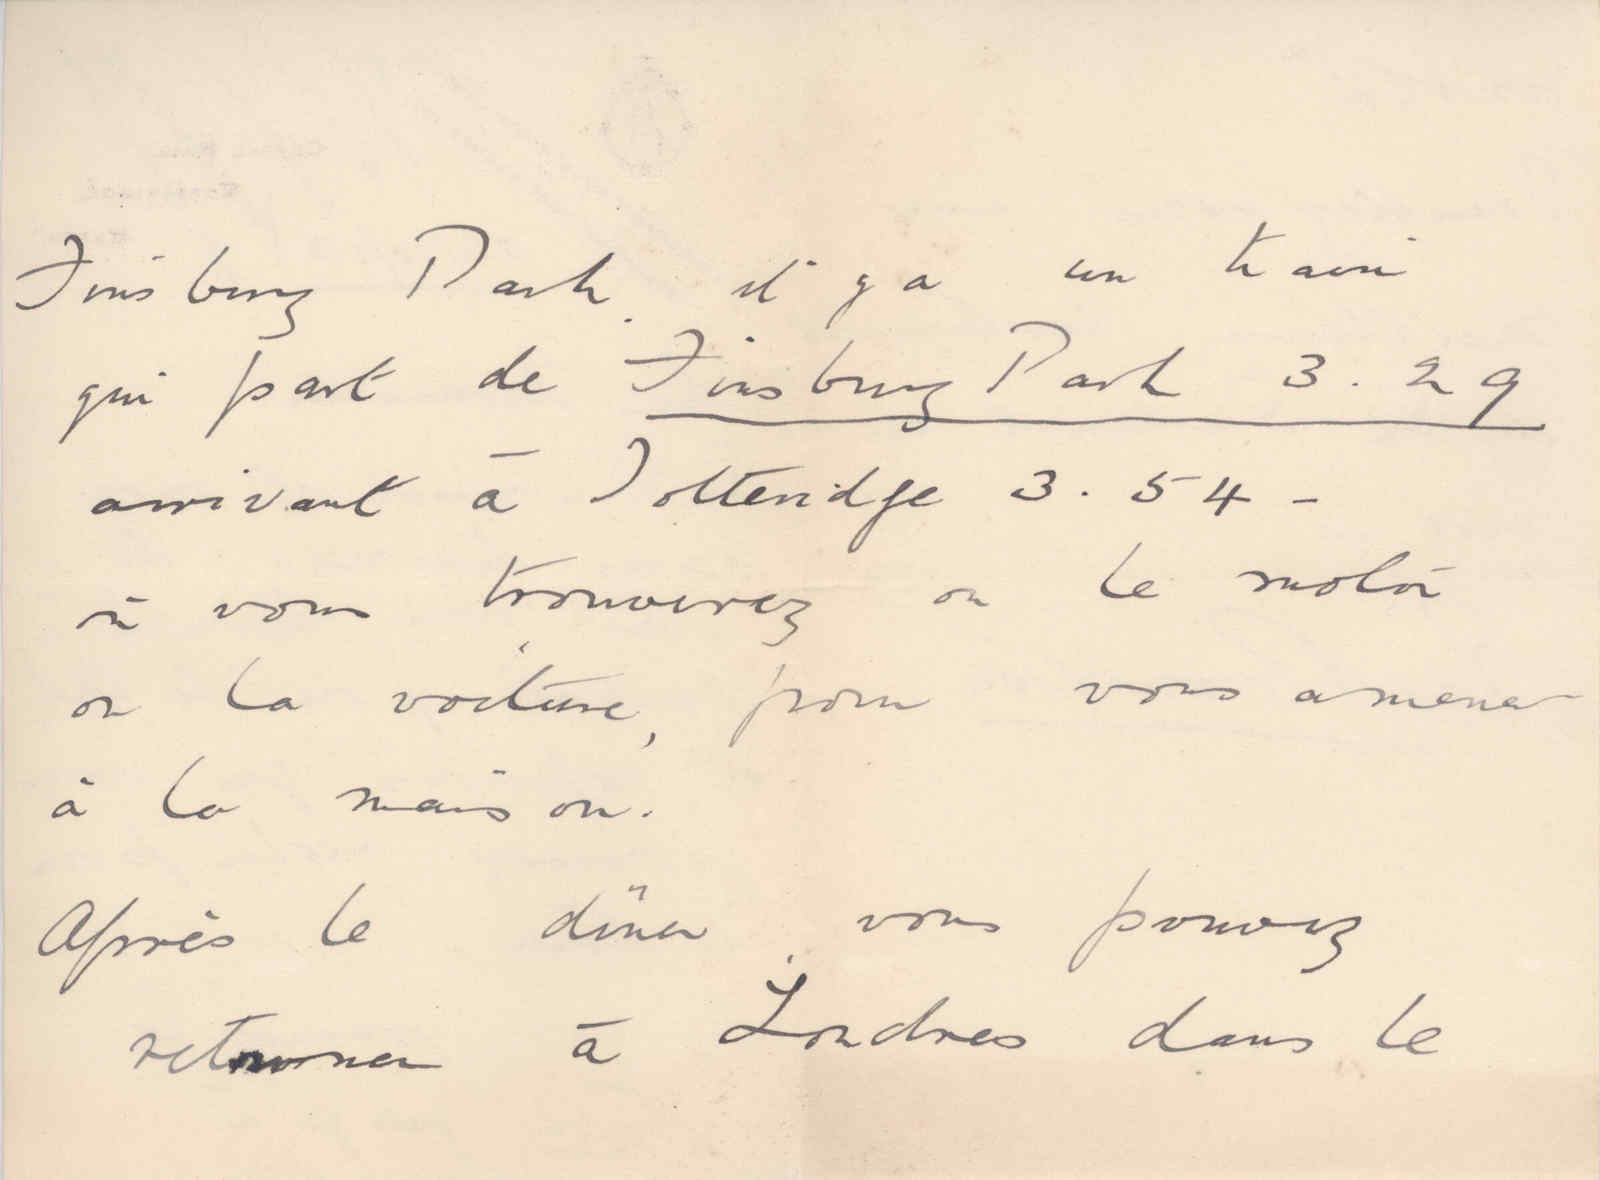 Finsbury Park. il y a un train
qui part de Finsbury Park 3.29
arrivant à Totteridge 3.54 -
où vous trouverez ou le motor
ou la voiture, pour vous amener
à la maison.
Après le dîner vous pouvez
retourner à Londres dans le